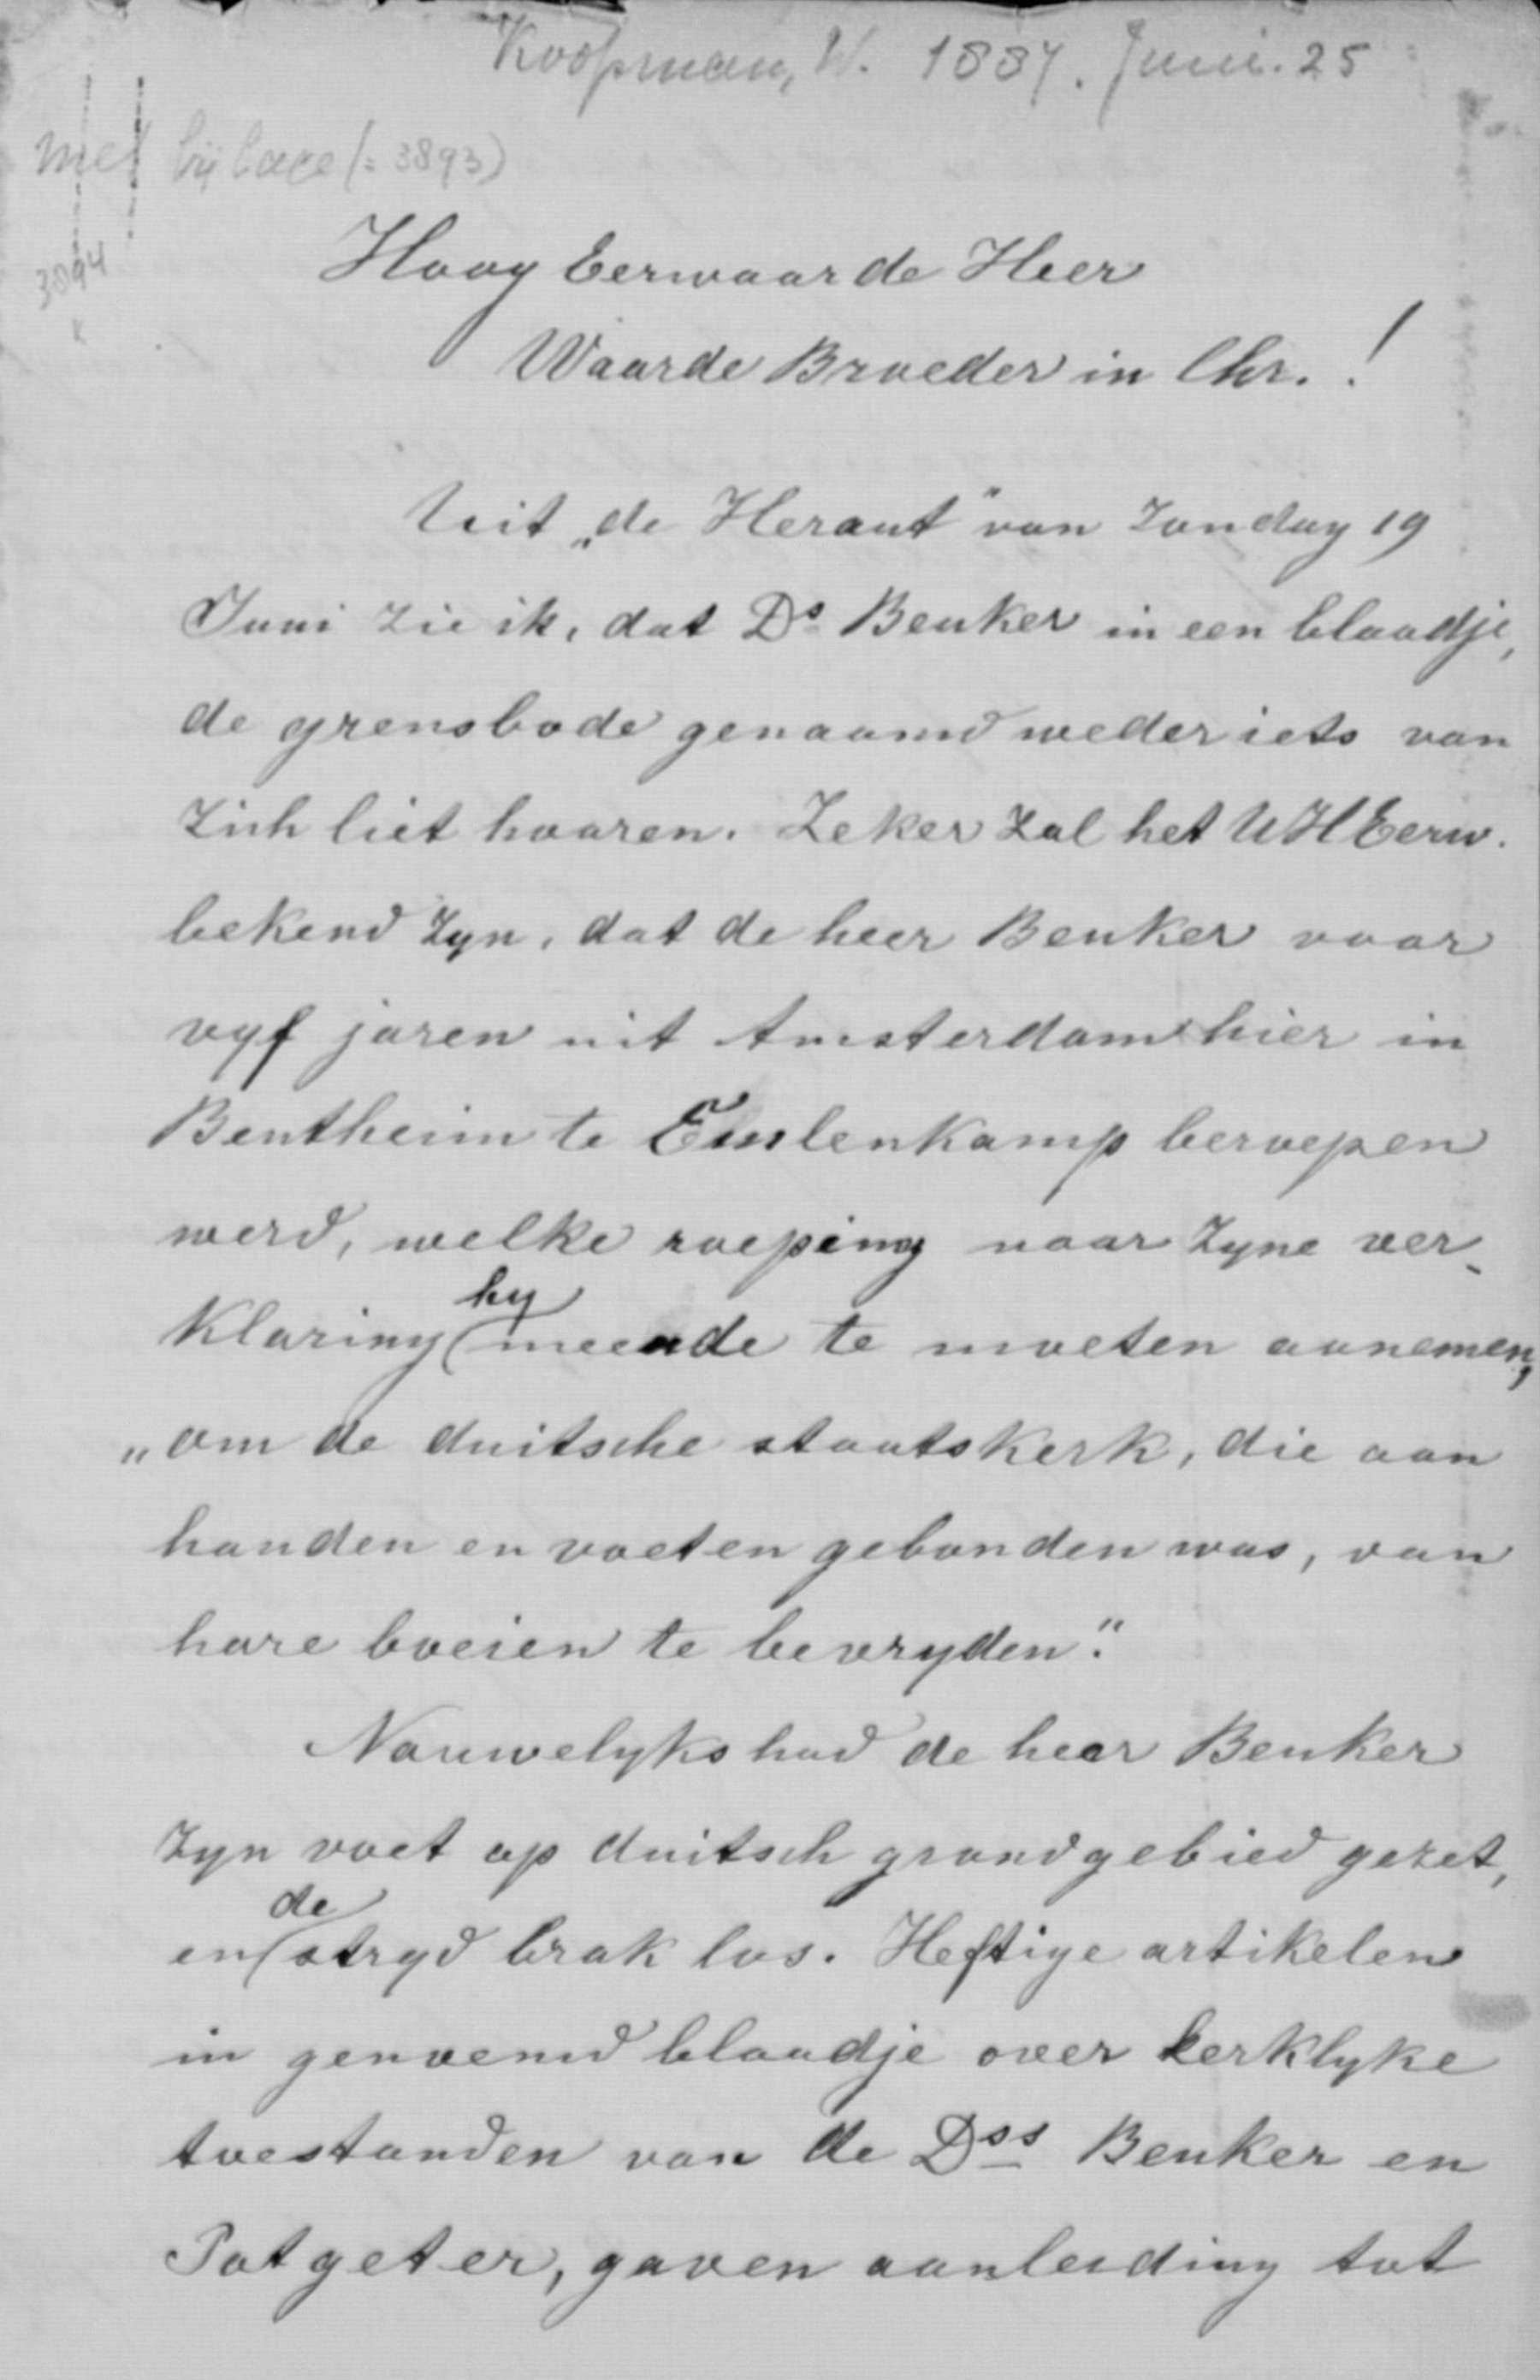 Koopman, W. 1887. Juni. 25
met bijlage (= 3893)
3894
Hoog Eerwaarde Heer
Waarde Broeder in Chr. !
Uit „de Heraut" van Zondag 19
Juni zie ik, dat Ds Beuker in een blaadje,
de grensbode genaamd weder iets van
zich liet hooren. Zeker zal het UHEerw.
bekend zyn, dat de heer Beuker voor
vyf jaren uit Amsterdam hier in
Bentheim te Emlenkamp beroepen
werd, welke roeping naar zyne ver-
klaring hy meende te moeten aannemen,
„om de duitsche staatskerk, die aan
handen en voeten gebonden was, van
hare boeien te bevryden".
Nauwelyks had de heer Beuker
zyn voet op duitsch grondgebied gezet,
en de stryd brak los. Heftige artikelen
in genoemd blaadje over kerklyke
toestanden van de Dss Beuker en
Potgeter, gaven aanleiding tot